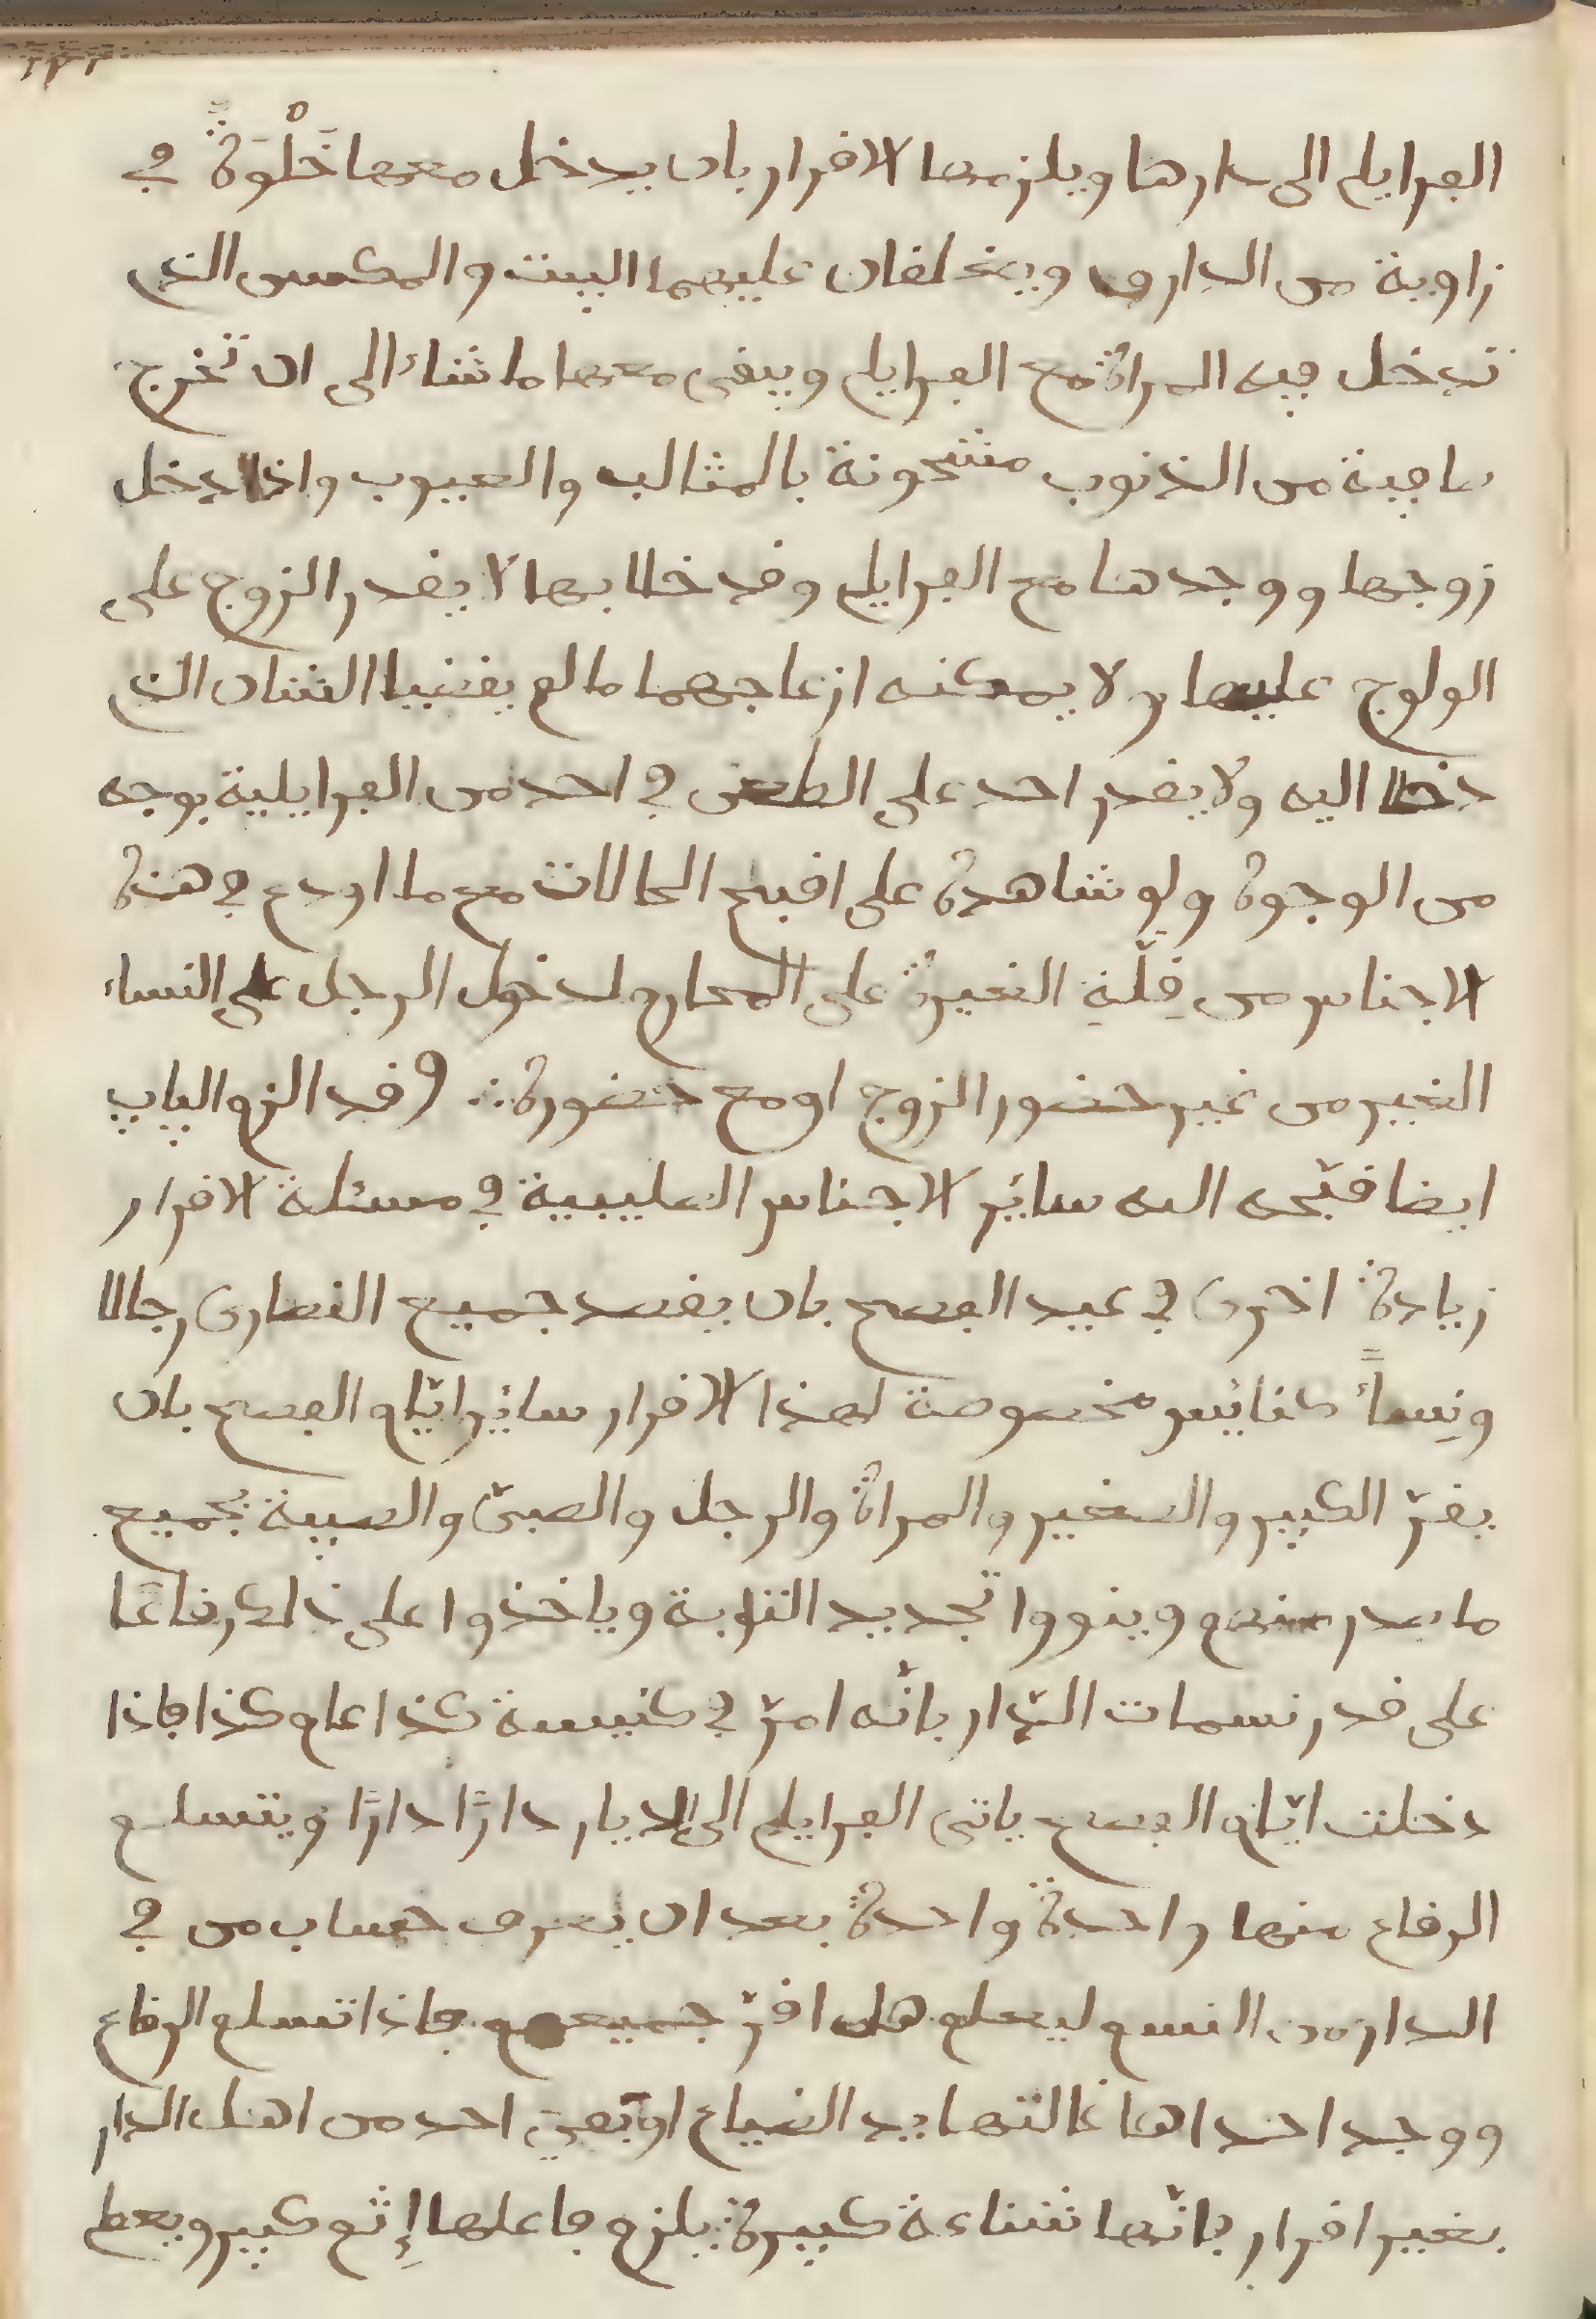 الفرايلي الى دارها ويلزمها الاقرار بان يدخل معها خَلْوَةً في
زاوية من الدار ويغلقان عليهما البيت والمكس الذي
تدخل فيه المراة مع الفرايلي ويبقى معها ما شاء الى ان تخرج
صافية من الذنوب مشحونة بالمثالب والعيوب واذا دخل
زوجها ووجدها مع الفرايلي وقد خلا بها لا يقدر الزوج على
الولوج عليها ولا يمكنه ازعاجهما ما لم يقضيا الشان الذي
دخلا اليه ولا يقدر احد على الطعن في احد من الفرايلية بوجه
من الوجوه ولو شاهده على اقبح الحالات مع ما اودع في هذه
الاجناس من قِلّةِ الغيرة على المحارم لدخول الرجل على النساء
الغير من غير حضور الزوج او مع حضوره ∴ وقد الزم الپاپ
ايضا قبّحه الله سائر الاجناس الصليبية في مسئلة الاقرار
زيادة اخرى في عيد الفصح بان يقصد جميع النصارى رجالا
ونِساءً كنائس مخصوصة لهذا الاقرار سائر ايّام الفصح بان
يقرّ الكبير والصغير والمراة والرجل والصبيّ والصبية بجميع
ما صدر منهم وينووا تجديد التوبة وياخذوا على ذلك رقاعًا
على قدر نسمات الدّار بانّه امرّ في كنيسة كذا عام كذا فاذا
دخلت ايّام الفصح ياتي الفرايلي الى الديار دارًا دارًا ويتسلم
الرقاع منها واحدة واحدة بعد ان يعرف حساب من في
الدار من النسم ليعلم هل اقرّ جميعهم فاذا تسلم الرقاع
ووجد احداها غالتها يد الضياع او بقي احد من اهل الدار
بغير اقرار فانّها شناعة كبيرة يلزم فاعلها إثم كبير ويعطى